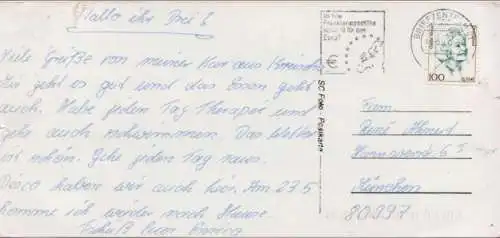 Hallo ihr Drei!
Viele Grüße von meiner Kur aus
Mir geht es gut und das Essen geht
auch. Habe jeden Tag Therapie und
gehe auch schwimmen. Das Wetter
ist schön. Gehe jeden Tag raus.
Disco haben wir auch hier. Am 23.5
komme ich wieder nach Hause.
Euer
SC Foto Postkarte
BRIEFZENTRUM
100
Fam.
René
6
München
80997